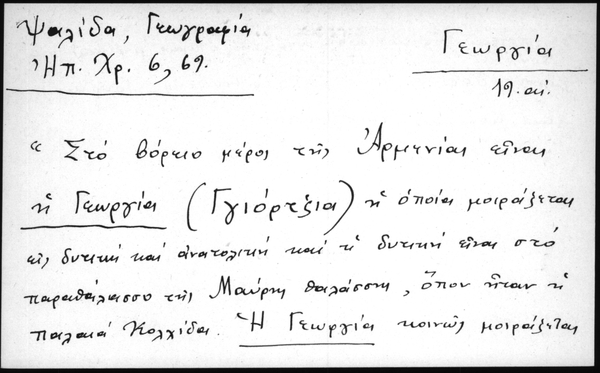 Ψαλίδα, Γεωγραφία
Ἠπ. Χρ. 6, 69.
Γεωργία
19. αἰ.
“ Στό βόρειο μέρος τῆς Ἀρμενίας εἶναι
ἡ Γεωργία (Γγιόρτζια) ἡ ὁποία μοιράζεται
εἰς δυτική καί ἀνατολική καί ἡ δυτική εἶναι στό
παραθάλασσο τῆς Μαύρης θαλάσσης, ὅπου ἦταν ἡ
παλαιά Κολχίδα. Ἡ Γεωργία κοινῶς μοιράζεται